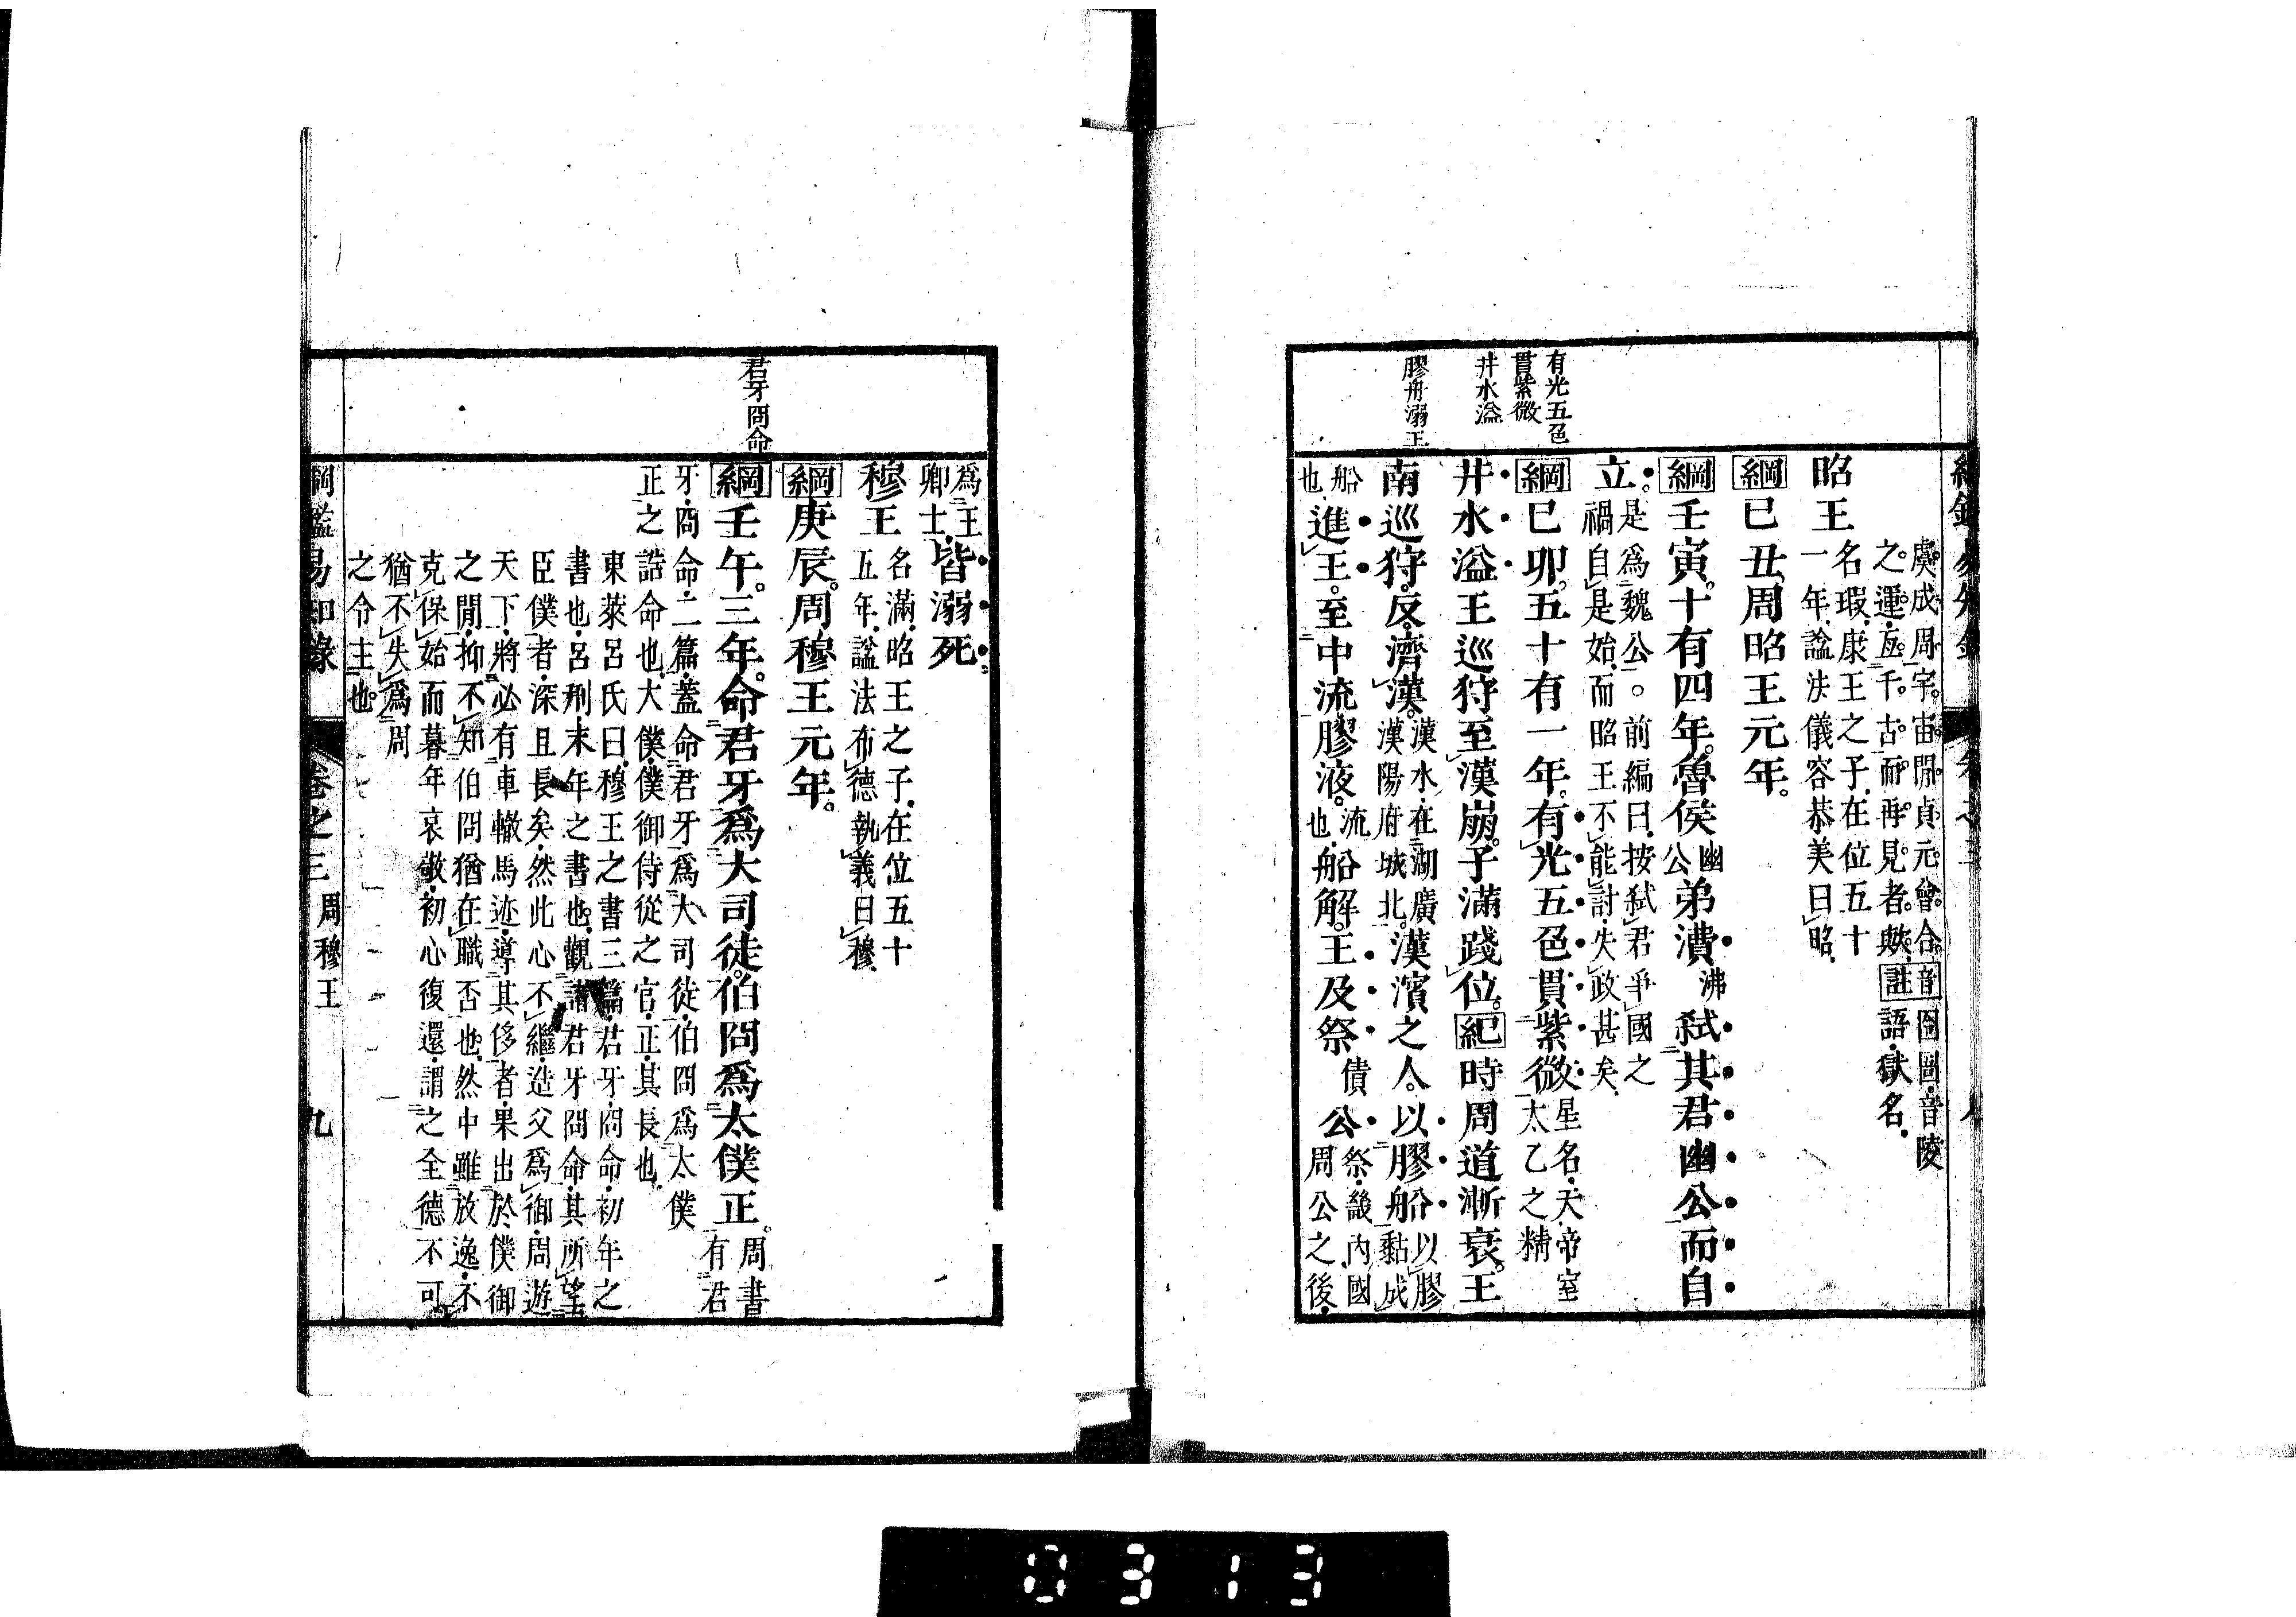 有光五色
貫紫微
井水溢
膠舟溺王
虞成周宇宙閒貞元會合音囹圄音陵
之運亙千古而再見者歟註語獄名
昭王名瑕康王之子在位五十
一年諡法儀容恭美曰昭
綱己丑周昭王元年
綱壬寅十有四年魯侯幽公弟㵒沸弒其君幽公而自
立是為魏公○前編曰按弒君爭國之
禍自是始而昭王不能討失政甚矣
綱己卯五十有一年有光五色貫紫微星名天帝室
太乙之精
井水溢王巡狩至漢崩子滿踐位紀時周道漸衰王
南巡狩反濟漢漢水在湖廣
漢陽府城北漢濱之人以膠船以膠
黏成
船
也進王至中流膠液流
也船解王及祭債公祭畿內國
周公之後
君牙冏命
為王
卿士皆溺死
穆王名滿昭王之子在位五十
五年諡法布德執義曰穆
綱庚辰周穆王元年
綱壬午三年命君牙為大司徒伯冏為太僕正周書
有君
牙冏命二篇蓋命君牙為大司徒伯冏為太僕
正之誥命也大僕僕御侍從之官正其長也
東萊呂氏曰穆王之書三篇君牙冏命初年之
書也呂刑末年之書也觀諸君牙冏命其所望
臣僕者深且長矣然此心不繼造父為御周遊
天下將必有車轍馬迹導其侈者果出於僕御
之閒抑不知伯冏猶在職否也然中雖放逸不
克保始而暮年哀敬初心復還謂之全德不可
猶不失為周
之令主也
綱鑑易知錄 卷之三 周穆王 九